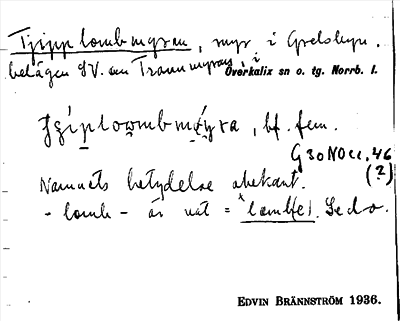 Tjipplombmyran, myr i Grelsbyn.
belägen SV. om Trannmyran, i
Överkalix sn o. tg. Norrb. l.
bf. fem.
G 30 NO ce, 46
(?)
Namnets betydelse obekant.
- lomb - är väl = lomb(e). Se d.o.
EDVIN BRÄNNSTRÖM 1936.